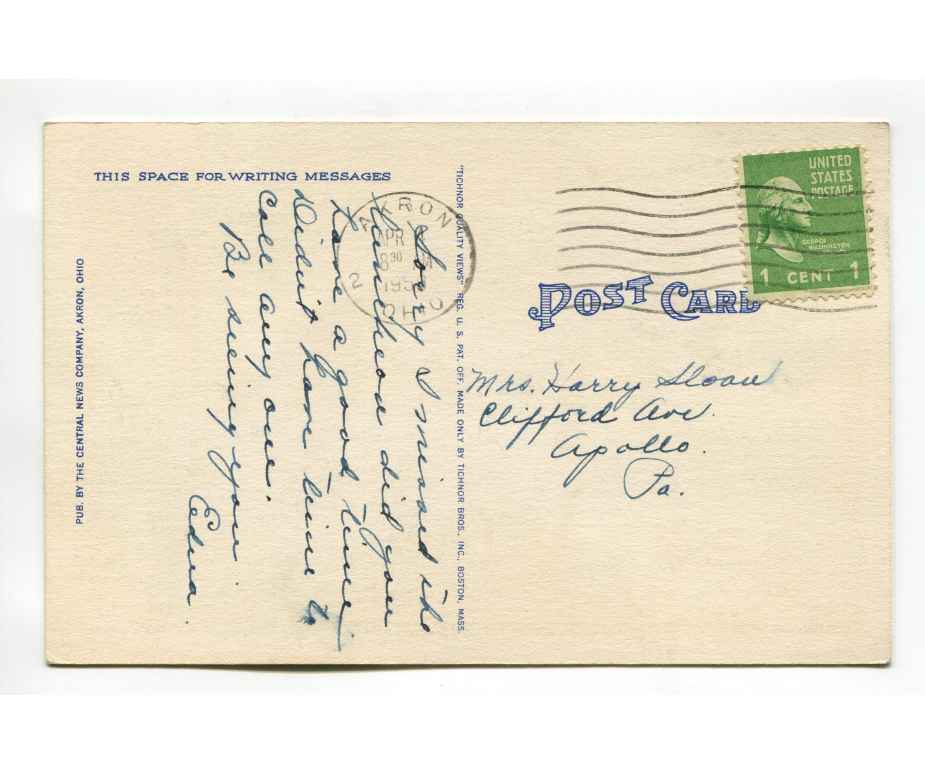 THIS SPACE FOR WRITING MESSAGES
Sorry I missed the
luncheon did you
have a good time
Didn't have time to
call any one.
Be seeing you
Edna.
PUB. BY THE CENTRAL NEWS COMPANY, AKRON, OHIO
"TICHNOR QUALITY VIEWS" REG. U. S. PAT. OFF. MADE ONLY BY TICHNOR BROS., INC., BOSTON, MASS.
AKRON
APR
8 30 M
2
195
OHIO
UNITED
STATES
POSTAGE
GEORGE
WASHINGTON
1 CENT 1
POST CARD
Mrs. Harry Sloan
Clifford Ave.
Apollo.
Pa.